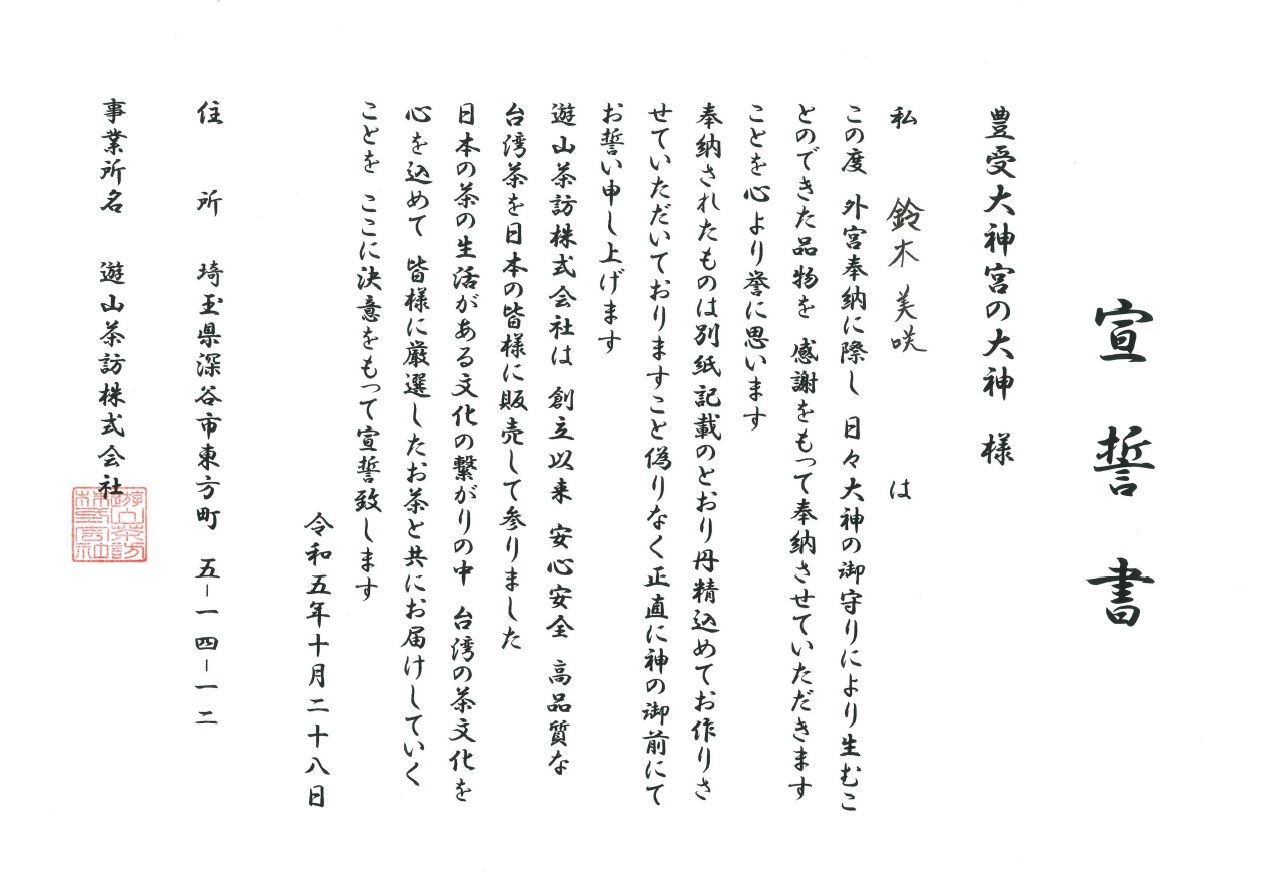 宣誓書
豊受大神宮の大神 様
私 鈴木美咲 は
この度 外宮奉納に際し 日々大神の御守りにより生むこ
とのできた品物を 感謝をもって奉納させていただきます
ことを心より誉に思います
奉納されたものは別紙記載のとおり丹精込めてお作りさ
せていただいておりますこと偽りなく正直に神の御前にて
お誓い申し上げます
遊山茶訪株式会社は 創立以来 安心安全 高品質な
台湾茶を日本の皆様に販売して参りました
日本の茶の生活がある文化の繋がりの中 台湾の茶文化を
心を込めて 皆様に厳選したお茶と共にお届けしていく
ことを ここに決意をもって宣誓致します
令和五年十月二十八日
住所 埼玉県深谷市東方町 五-一四-一二
事業所名 遊山茶訪株式会社
遊山茶訪株式会社